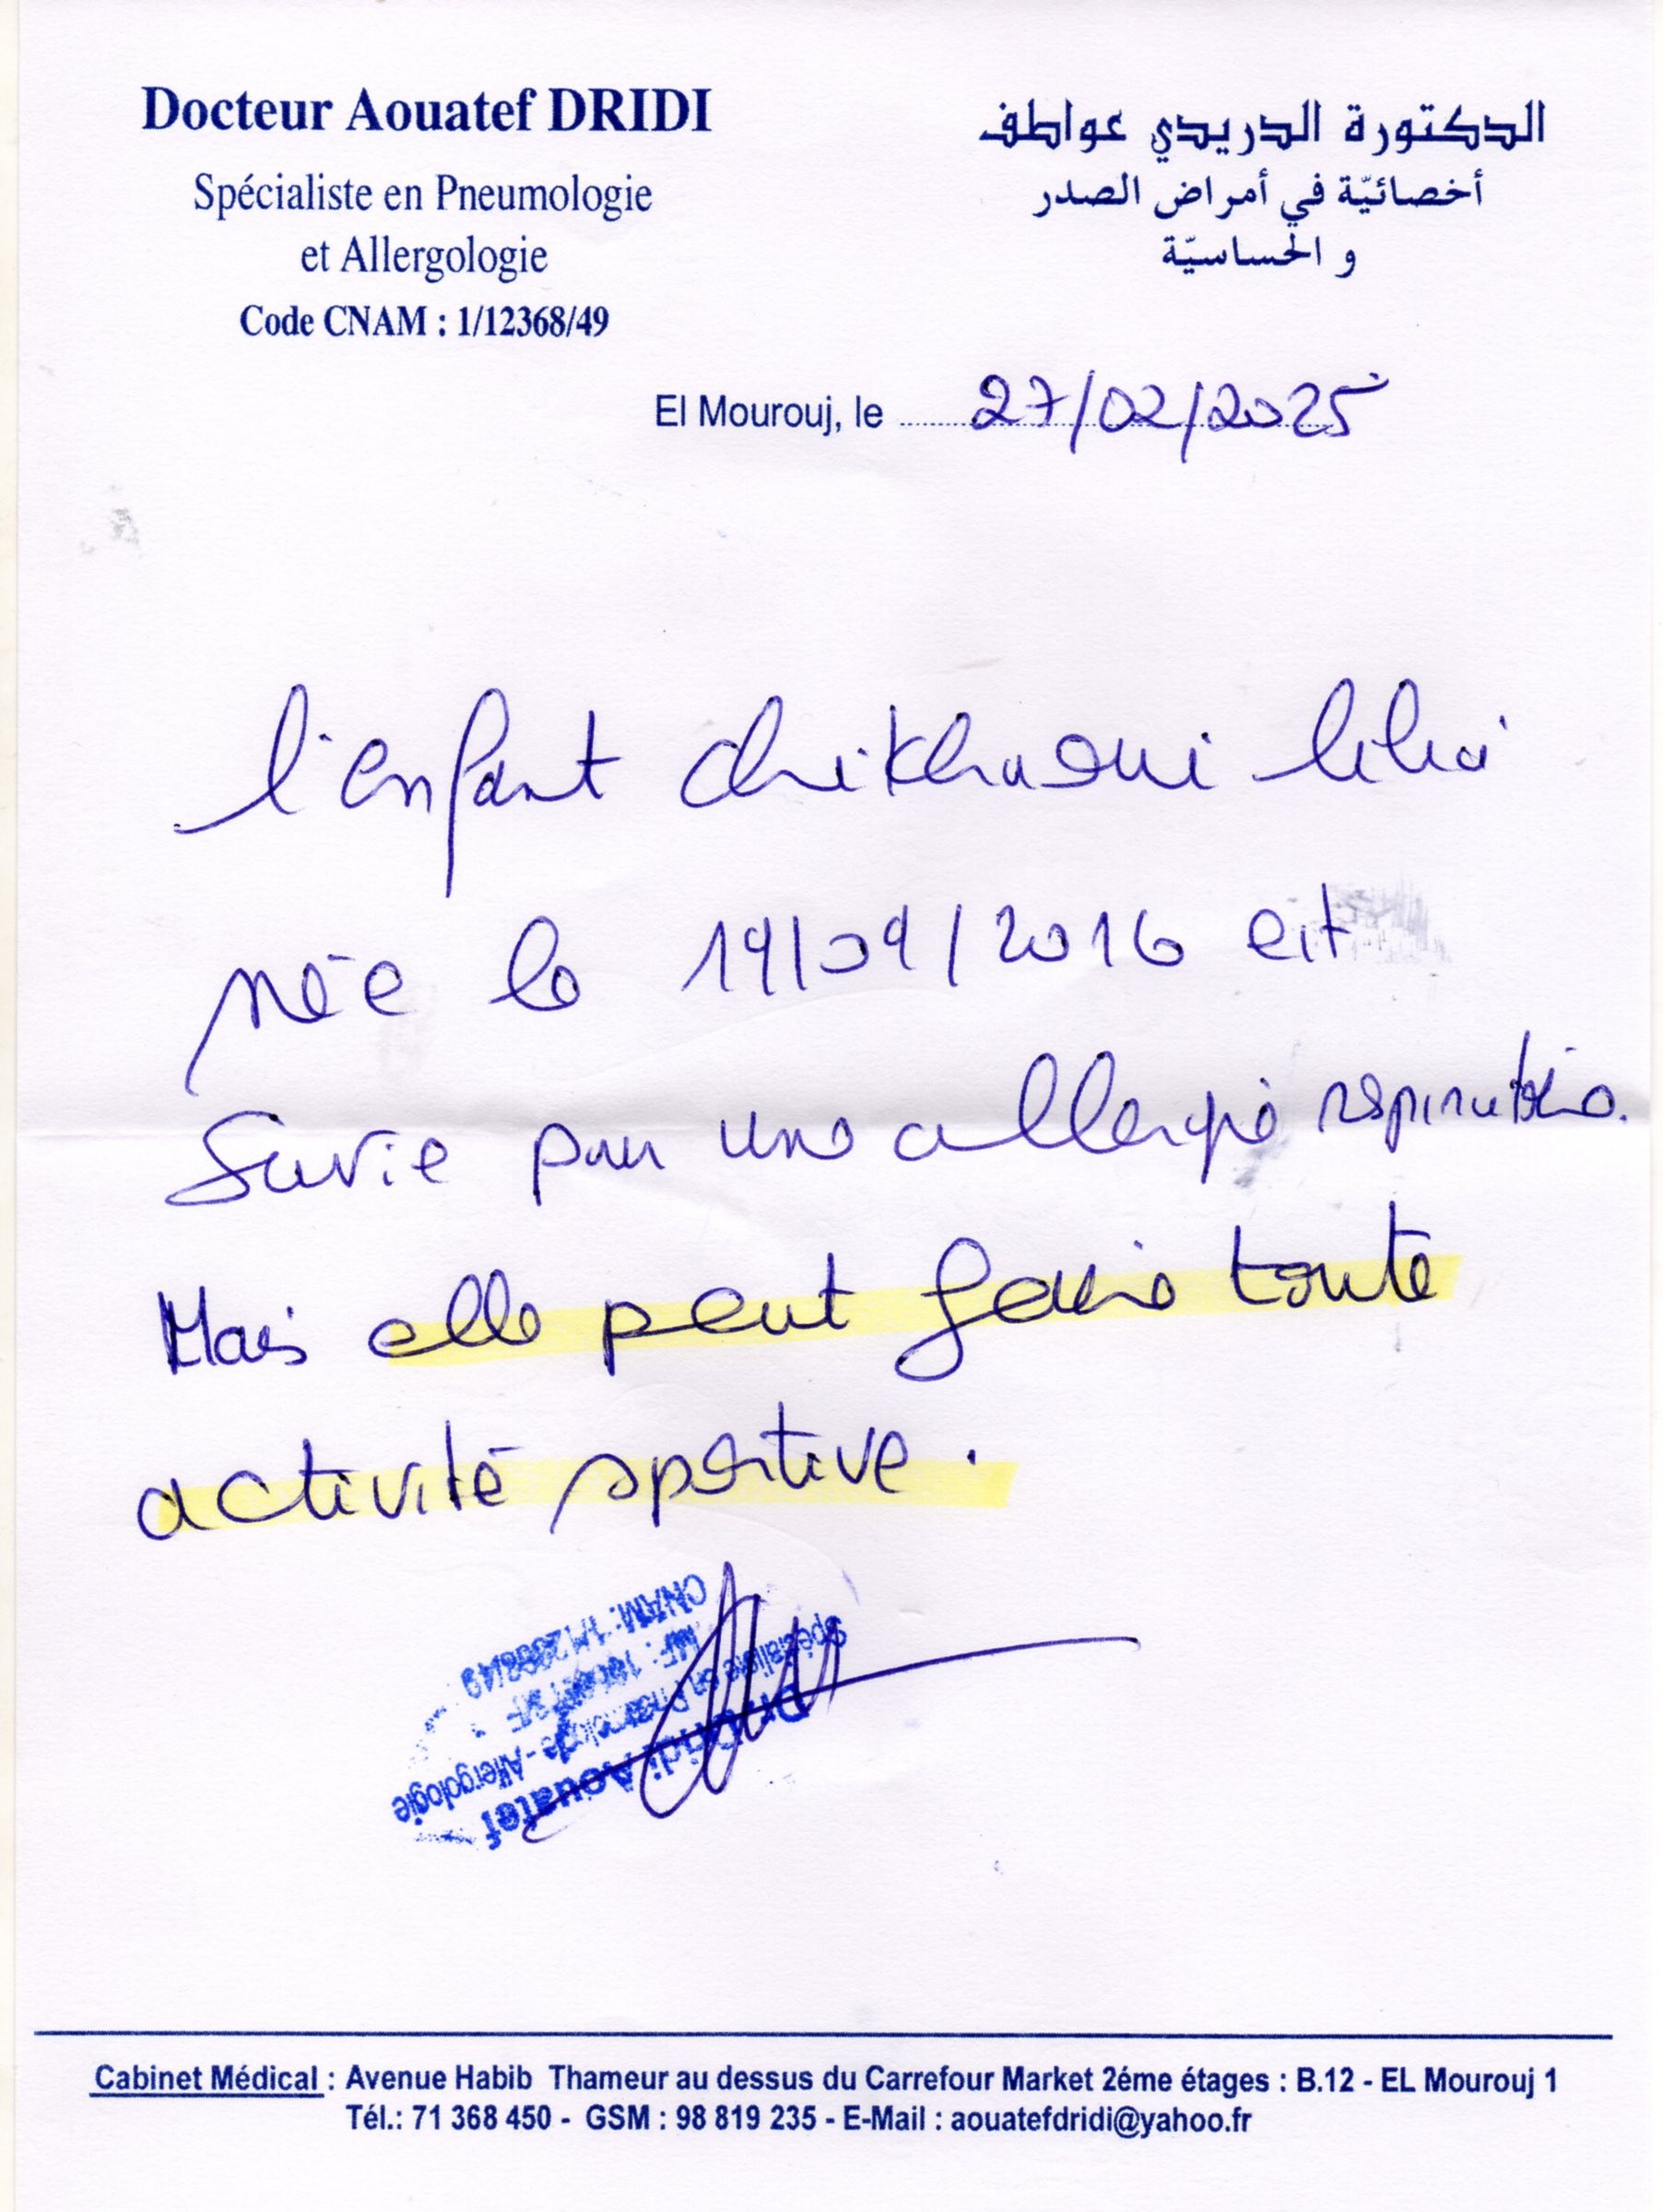 Docteur Aouatef DRIDI
Spécialiste en Pneumologie
et Allergologie
Code CNAM : 1/12368/49
الدكتورة الدريدي عواطف
أخصائيّة في أمراض الصدر
و الحساسيّة
El Mourouj, le 27/02/2025
l'enfant chikhaoui lilia
née le 19/09/2016 est
suivie pour une allergie respiratoire.
Mais elle peut faire toute
activité sportive.
CNAM: 1/12368/49
MF:
Spécialiste en Pneumologie - Allergologie
Dr. Dridi Aouatef
Cabinet Médical : Avenue Habib Thameur au dessus du Carrefour Market 2éme étages : B.12 - EL Mourouj 1
Tél.: 71 368 450 - GSM : 98 819 235 - E-Mail : aouatefdridi@yahoo.fr